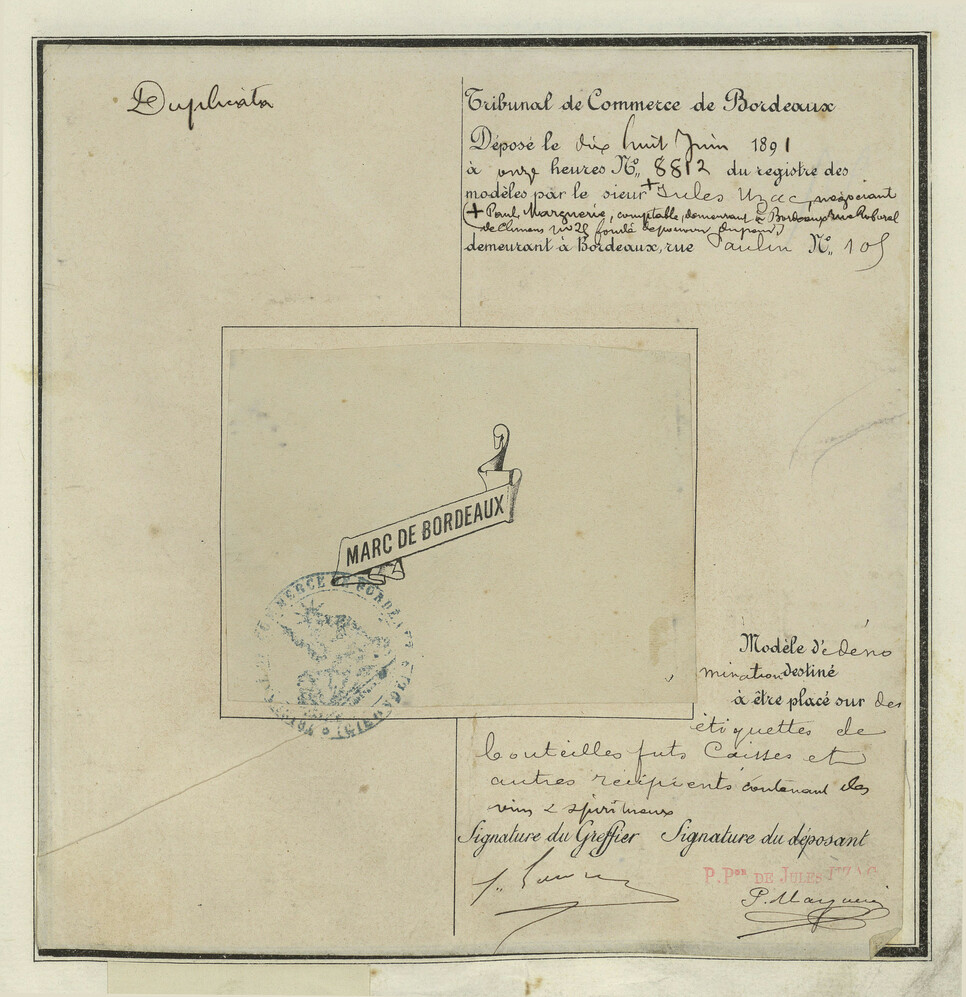 Duplicata
Tribunal de Commerce de Bordeaux
Déposé le dix huit Juin 1891
à onze heures N° 8812 du registre des
modèles par le sieur + Jules Uzac, négociant
(+ Paul Marguerie, comptable, demeurant à Bordeaux rue
N° 29 fondé de pouvoir
demeurant à Bordeaux, rue Paulin N° 105
MARC DE BORDEAUX
COMMERCE DE BORDEAUX
Modèle de déno
mination destiné
à être placé sur des
étiquettes de
bouteilles futs Caisses et
autres récipients contenant des
vins & spiritueux
Signature du Greffier Signature du déposant
P. Pon DE JULES UZAC
P. Marguerie